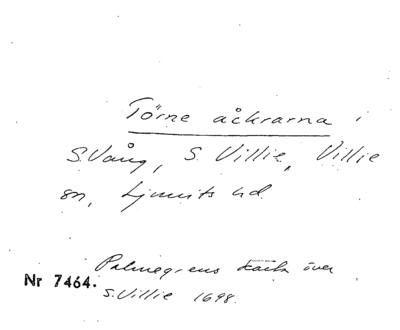 Törne åkrarna i
S. Vång, S. Villie, Villie
sn, Ljunits hd.
Palmegrens karta över
Nr 7464.
S. Villie 1698.